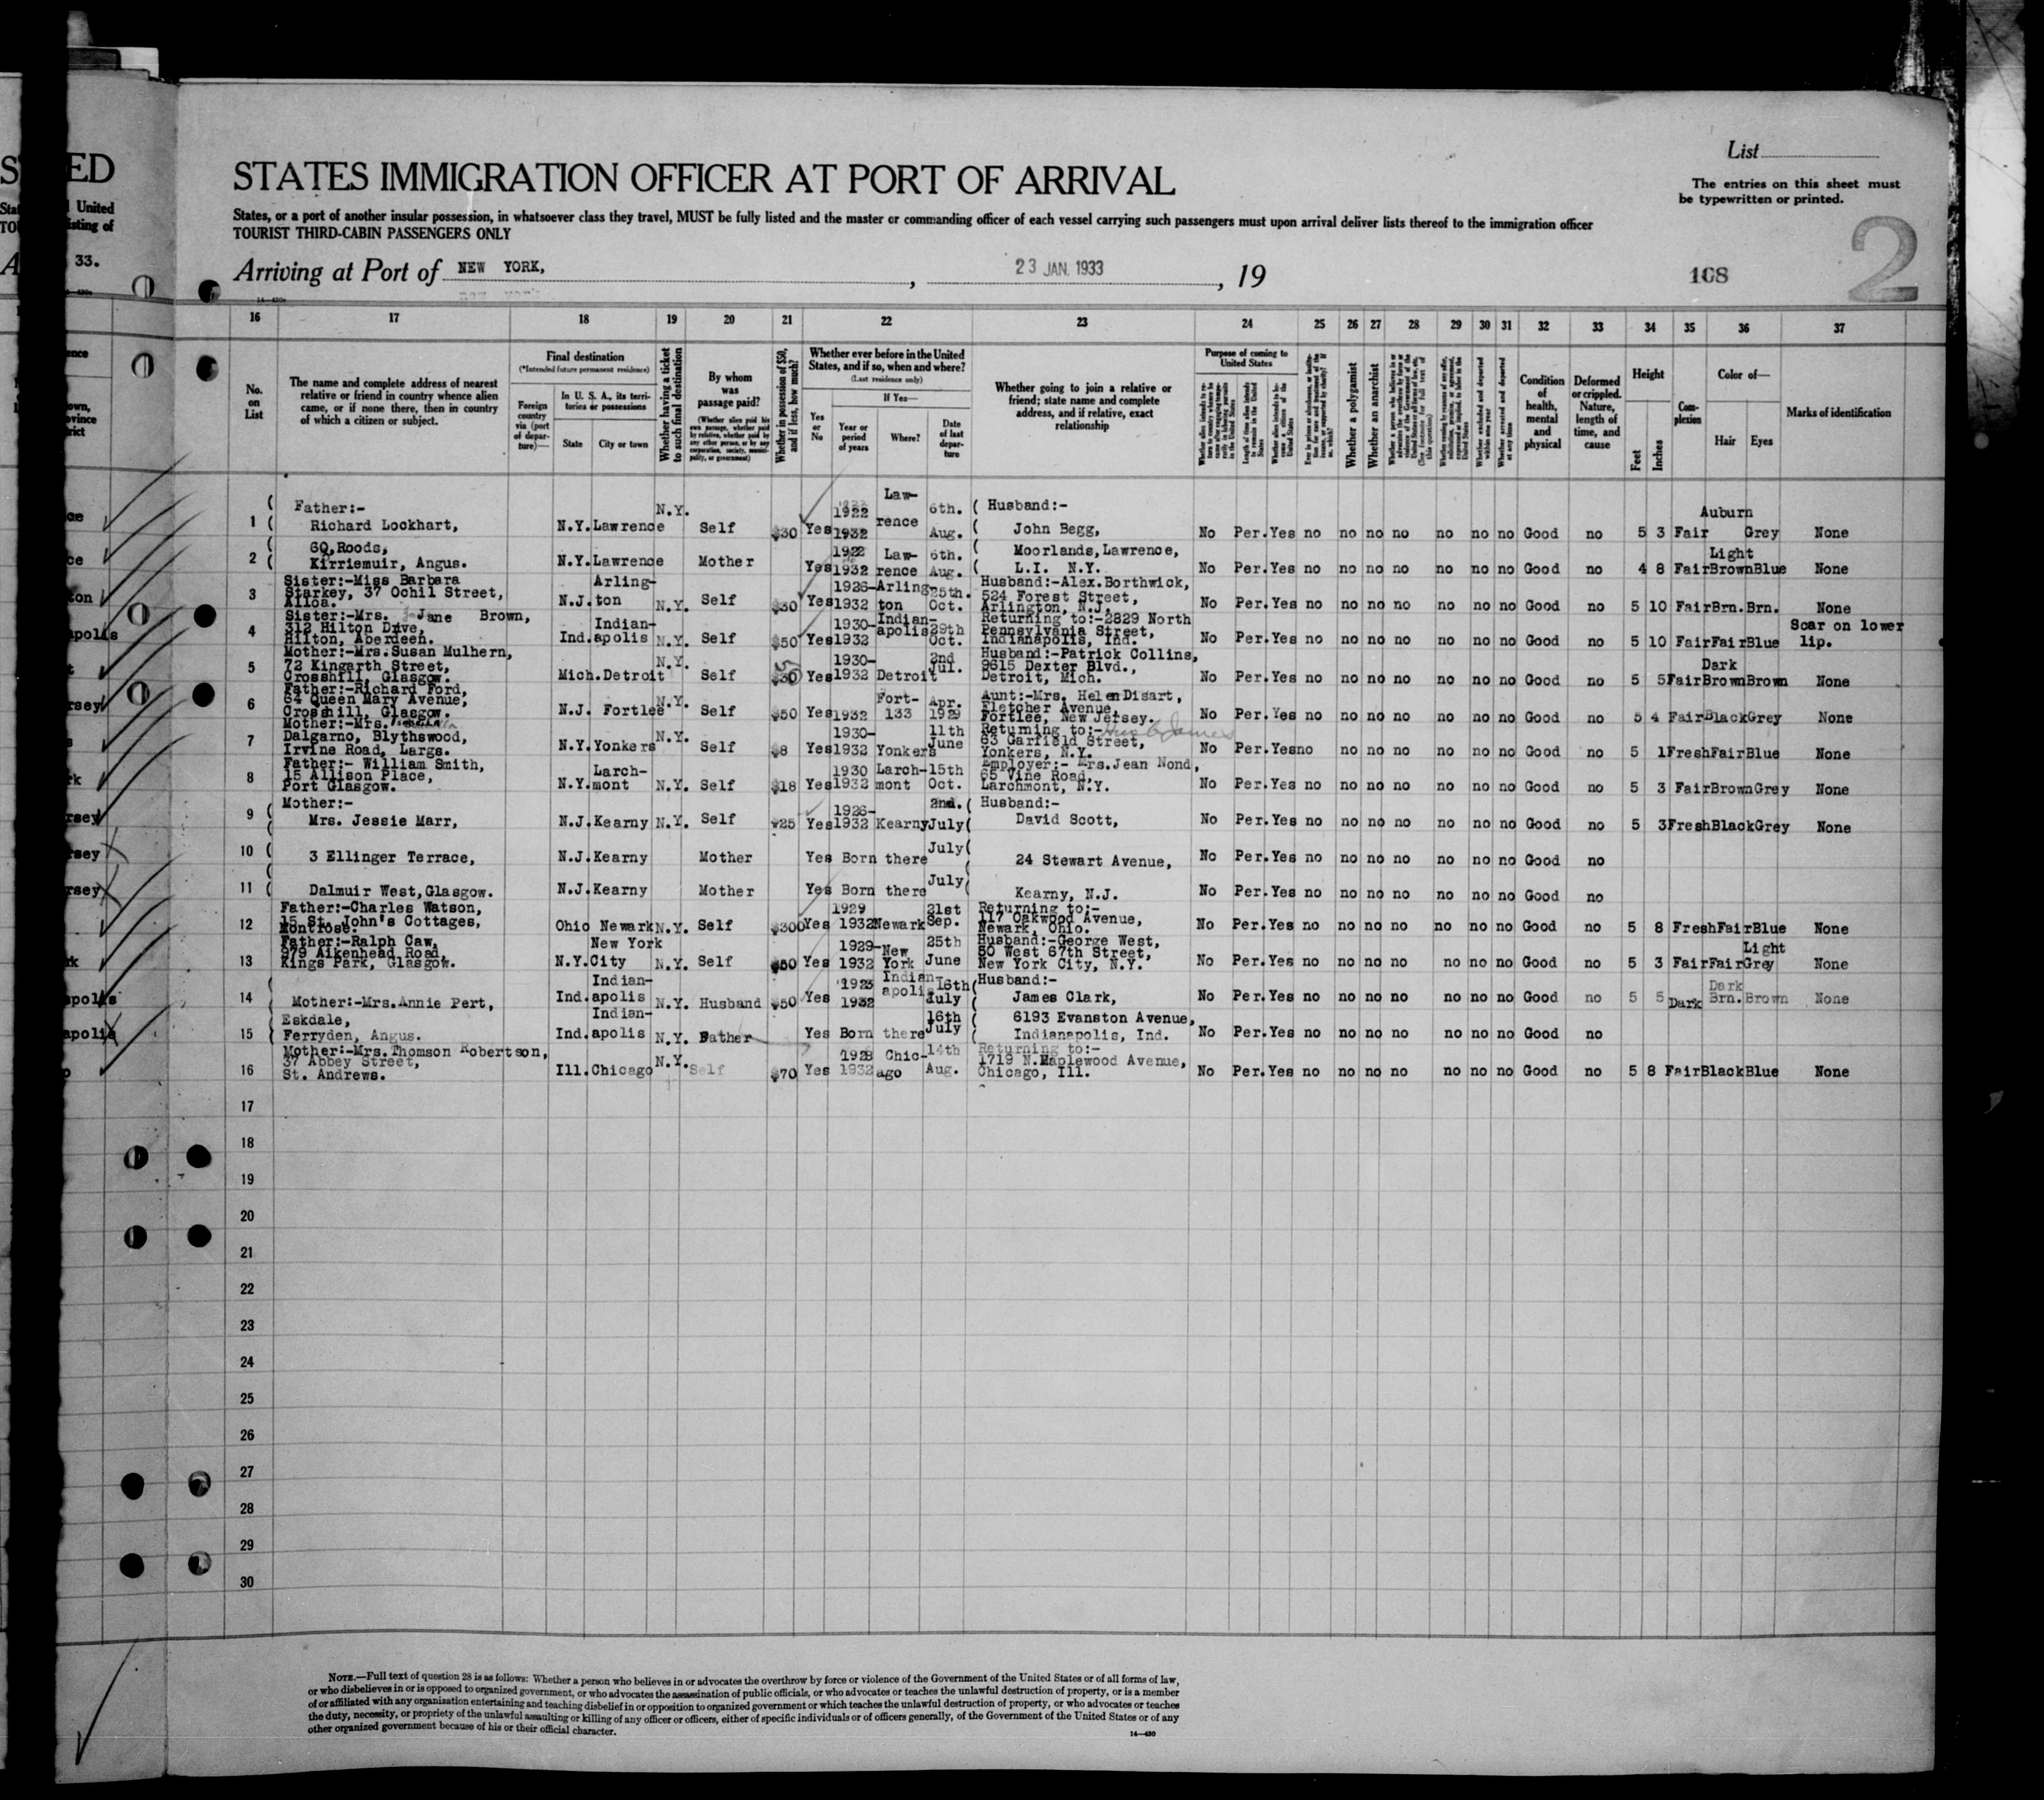 List
STATES IMMIGRATION OFFICER AT PORT OF ARRIVAL
The entries on this sheet must
be typewritten or printed.
States, or a port of another insular possession, in whatsoever class they travel, MUST be fully listed and the master or commanding officer of each vessel carrying such passengers must upon arrival deliver lists thereof to the immigration officer
TOURIST THIRD-CABIN PASSENGERS ONLY
2
Arriving at Port of NEW YORK, , 23 JAN. 1933 , 19
108
16 17 18 19 20 21 22 23 24 25 26 27 28 29 30 31 32 33 34 35 36 37
No. on List
The name and complete address of nearest
relative or friend in country whence alien
came, or if none there, then in country
of which a citizen or subject.
Final destination
(*Intended future permanent residence)
Foreign country via (port of departure)—
In U. S. A., its territories or possessions
State City or town
Whether having a ticket to such final destination
By whom was passage paid?
(Whether alien paid his own passage, whether paid by relative, whether paid by any other person, or by any corporation, society, municipality, or government)
Whether in possession of $50, and if less, how much?
Whether ever before in the United
States, and if so, when and where?
(Last residence only)
Yes or No
If Yes—
Year or period of years
Where?
Date of last departure
Whether going to join a relative or
friend; state name and complete
address, and if relative, exact
relationship
Purpose of coming to United States
Whether a polygamist
Whether an anarchist
Condition of health, mental and physical
Deformed or crippled. Nature, length of time, and cause
Height
Feet Inches
Complexion
Color of—
Hair Eyes
Marks of identification
1 Father:- Richard Lockhart, N.Y. Lawrence N.Y. Self $30 Yes 1922 1932 Lawrence 6th. Aug. Husband:- John Begg, No Per. Yes no no no no no no no Good no 5 3 Fair Auburn Grey None
2 60, Roods, Kirriemuir, Angus. N.Y. Lawrence Mother Yes 1922 1932 Lawrence 6th. Aug. Moorlands, Lawrence, L.I. N.Y. No Per. Yes no no no no no no no Good no 4 8 Fair Light Brown Blue None
3 Sister:-Miss Barbara Starkey, 37 Ochil Street, Alloa. N.J. Arlington N.Y. Self $30 Yes 1926-1932 Arlington 25th. Oct. Husband:-Alex. Borthwick, 524 Forest Street, Arlington, N.J. No Per. Yes no no no no no no no Good no 5 10 Fair Brn. Brn. None
4 Sister:-Mrs. Jane Brown, 312 Hilton Dive, Hilton, Aberdeen. Ind. Indianapolis N.Y. Self $50 Yes 1930-1932 Indianapolis 29th Oct. Returning to:-2829 North Pennsylvania Street, Indianapolis, Ind. No Per. Yes no no no no no no no Good no 5 10 Fair Fair Blue Scar on lower lip.
5 Mother:-Mrs. Susan Mulhern, 72 Kingarth Street, Crosshill, Glasgow. Mich. Detroit N.Y. Self $30 50 Yes 1930-1932 Detroit 2nd Jul. Husband:-Patrick Collins, 9615 Dexter Blvd., Detroit, Mich. No Per. Yes no no no no no no no Good no 5 5 Fair Dark Brown Brown None
6 Father:-Richard Ford, 64 Queen Mary Avenue, Crosshill, Glasgow. N.J. Fortlee N.Y. Self $50 Yes 1932 Fort- 133 Apr. 1929 Aunt:-Mrs. Helen Disart, Fletcher Avenue, Fortlee, New Jersey. No Per. Yes no no no no no no no Good no 5 4 Fair Black Grey None
7 Mother:-Mrs. Dalgarno, Blythswood, Irvine Road, Largs. N.Y. Yonkers N.Y. Self $8 Yes 1930-1932 Yonkers 11th June Returning to:- 63 Garfield Street, Yonkers, N.Y. No Per. Yes no no no no no no no Good no 5 1 Fresh Fair Blue None
8 Father:- William Smith, 15 Allison Place, Port Glasgow. N.Y. Larchmont N.Y. Self $18 Yes 1930 1932 Larchmont 15th Oct. Employer:- Mrs. Jean Nond, 65 Vine Road, Larchmont, N.Y. No Per. Yes no no no no no no no Good no 5 3 Fair Brown Grey None
9 Mother:- Mrs. Jessie Marr, N.J. Kearny N.Y. Self $25 Yes 1926-1932 Kearny 2nd. July Husband:- David Scott, No Per. Yes no no no no no no no Good no 5 3 Fresh Black Grey None
10 3 Ellinger Terrace, N.J. Kearny Mother Yes Born there July 24 Stewart Avenue, No Per. Yes no no no no no no no Good no
11 Dalmuir West, Glasgow. N.J. Kearny Mother Yes Born there July Kearny, N.J. No Per. Yes no no no no no no no Good no
12 Father:-Charles Watson, 15 St. John's Cottages, Montrose. Ohio Newark N.Y. Self $300 Yes 1929 1932 Newark 21st Sep. Returning to:- 117 Oakwood Avenue, Newark, Ohio. No Per. Yes no no no no no no no Good no 5 8 Fresh Fair Blue None
13 Father:-Ralph Caw, 979 Aikenhead Road, Kings Park, Glasgow. N.Y. New York City N.Y. Self $50 Yes 1929-1932 New York 25th June Husband:-George West, 50 West 67th Street, New York City, N.Y. No Per. Yes no no no no no no no Good no 5 3 Fair Fair Light Grey None
14 Mother:-Mrs. Annie Pert, Ind. Indianapolis N.Y. Husband $50 Yes 1923 1932 Indianapolis 16th July Husband:- James Clark, No Per. Yes no no no no no no no Good no 5 5 Dark Dark Brn. Brown None
15 Eskdale, Ferryden, Angus. Ind. Indianapolis N.Y. Father Yes Born there 16th July 6193 Evanston Avenue, Indianapolis, Ind. No Per. Yes no no no no no no no Good no
16 Mother:-Mrs. Thomson Robertson, 37 Abbey Street, St. Andrews. Ill. Chicago N.Y. Self $70 Yes 1928 1932 Chicago 14th Aug. Returning to:- 1719 N. Maplewood Avenue, Chicago, Ill. No Per. Yes no no no no no no no Good no 5 8 Fair Black Blue None
17
18
19
20
21
22
23
24
25
26
27
28
29
30
NOTE.—Full text of question 28 is as follows: Whether a person who believes in or advocates the overthrow by force or violence of the Government of the United States or of all forms of law,
or who disbelieves in or is opposed to organized government, or who advocates the assassination of public officials, or who advocates or teaches the unlawful destruction of property, or is a member
of or affiliated with any organization entertaining and teaching disbelief in or opposition to organized government or which teaches the unlawful destruction of property, or who advocates or teaches
the duty, necessity, or propriety of the unlawful assaulting or killing of any officer or officers, either of specific individuals or of officers generally, of the Government of the United States or of any
other organized government because of his or their official character.
14—430